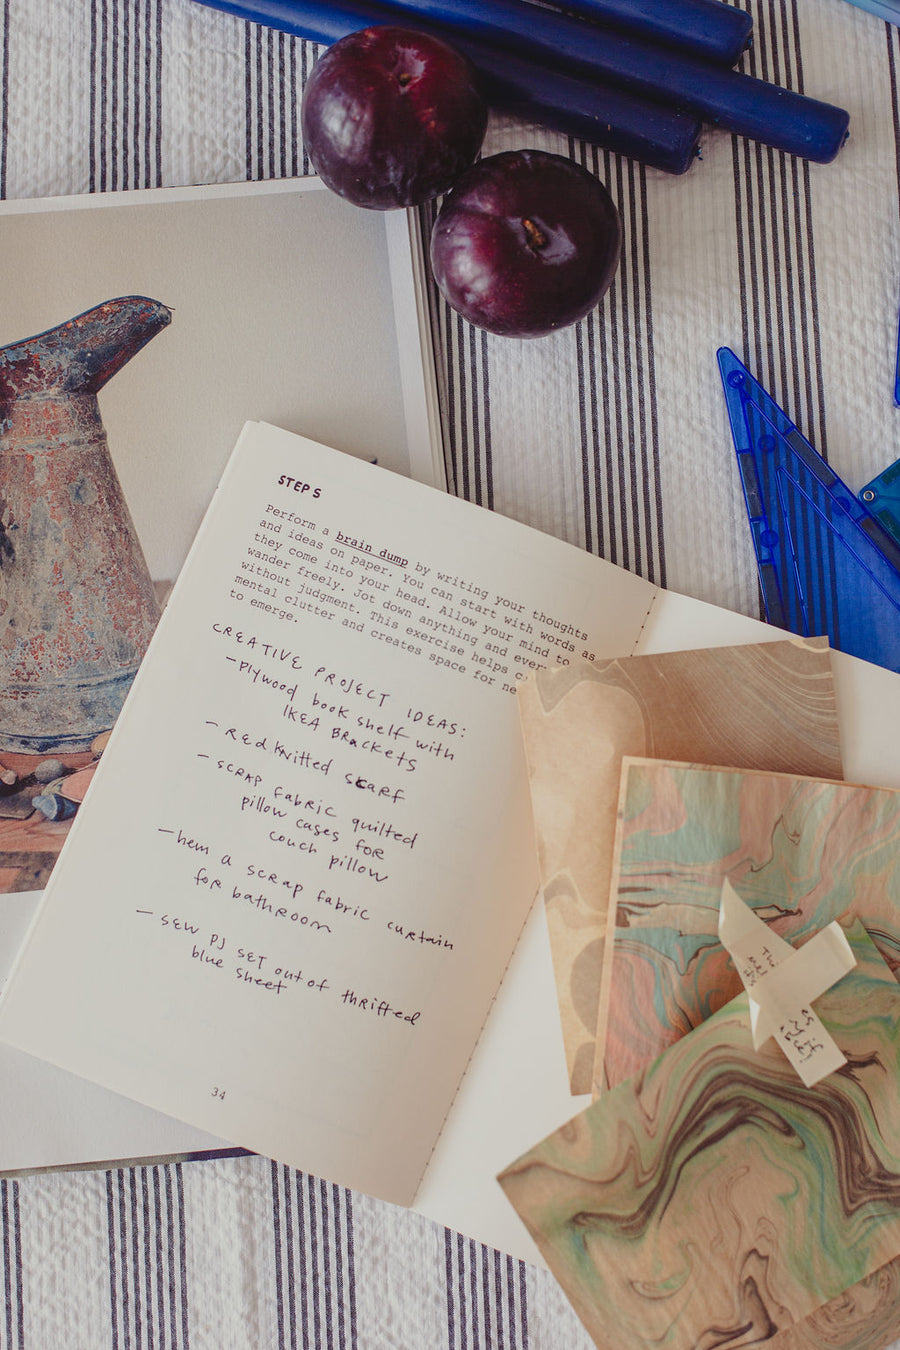 STEPS
Perform a brain dump by writing your thoughts
and ideas on paper. You can start with words as
they come into your head. Allow your mind to
wander freely. Jot down anything and
without judgment. This exercise helps
mental clutter and creates space for
to emerge.
CREATIVE PROJECT IDEAS:
- Plywood book shelf with
IKEA BRackets
- REd Knitted scarf
- SCRAP fabric quilted
pillow cases for
couch pillow
- hem a scrap fabric curtain
for bathroom
- sew PJ SET out of thrifted
blue sheet
34